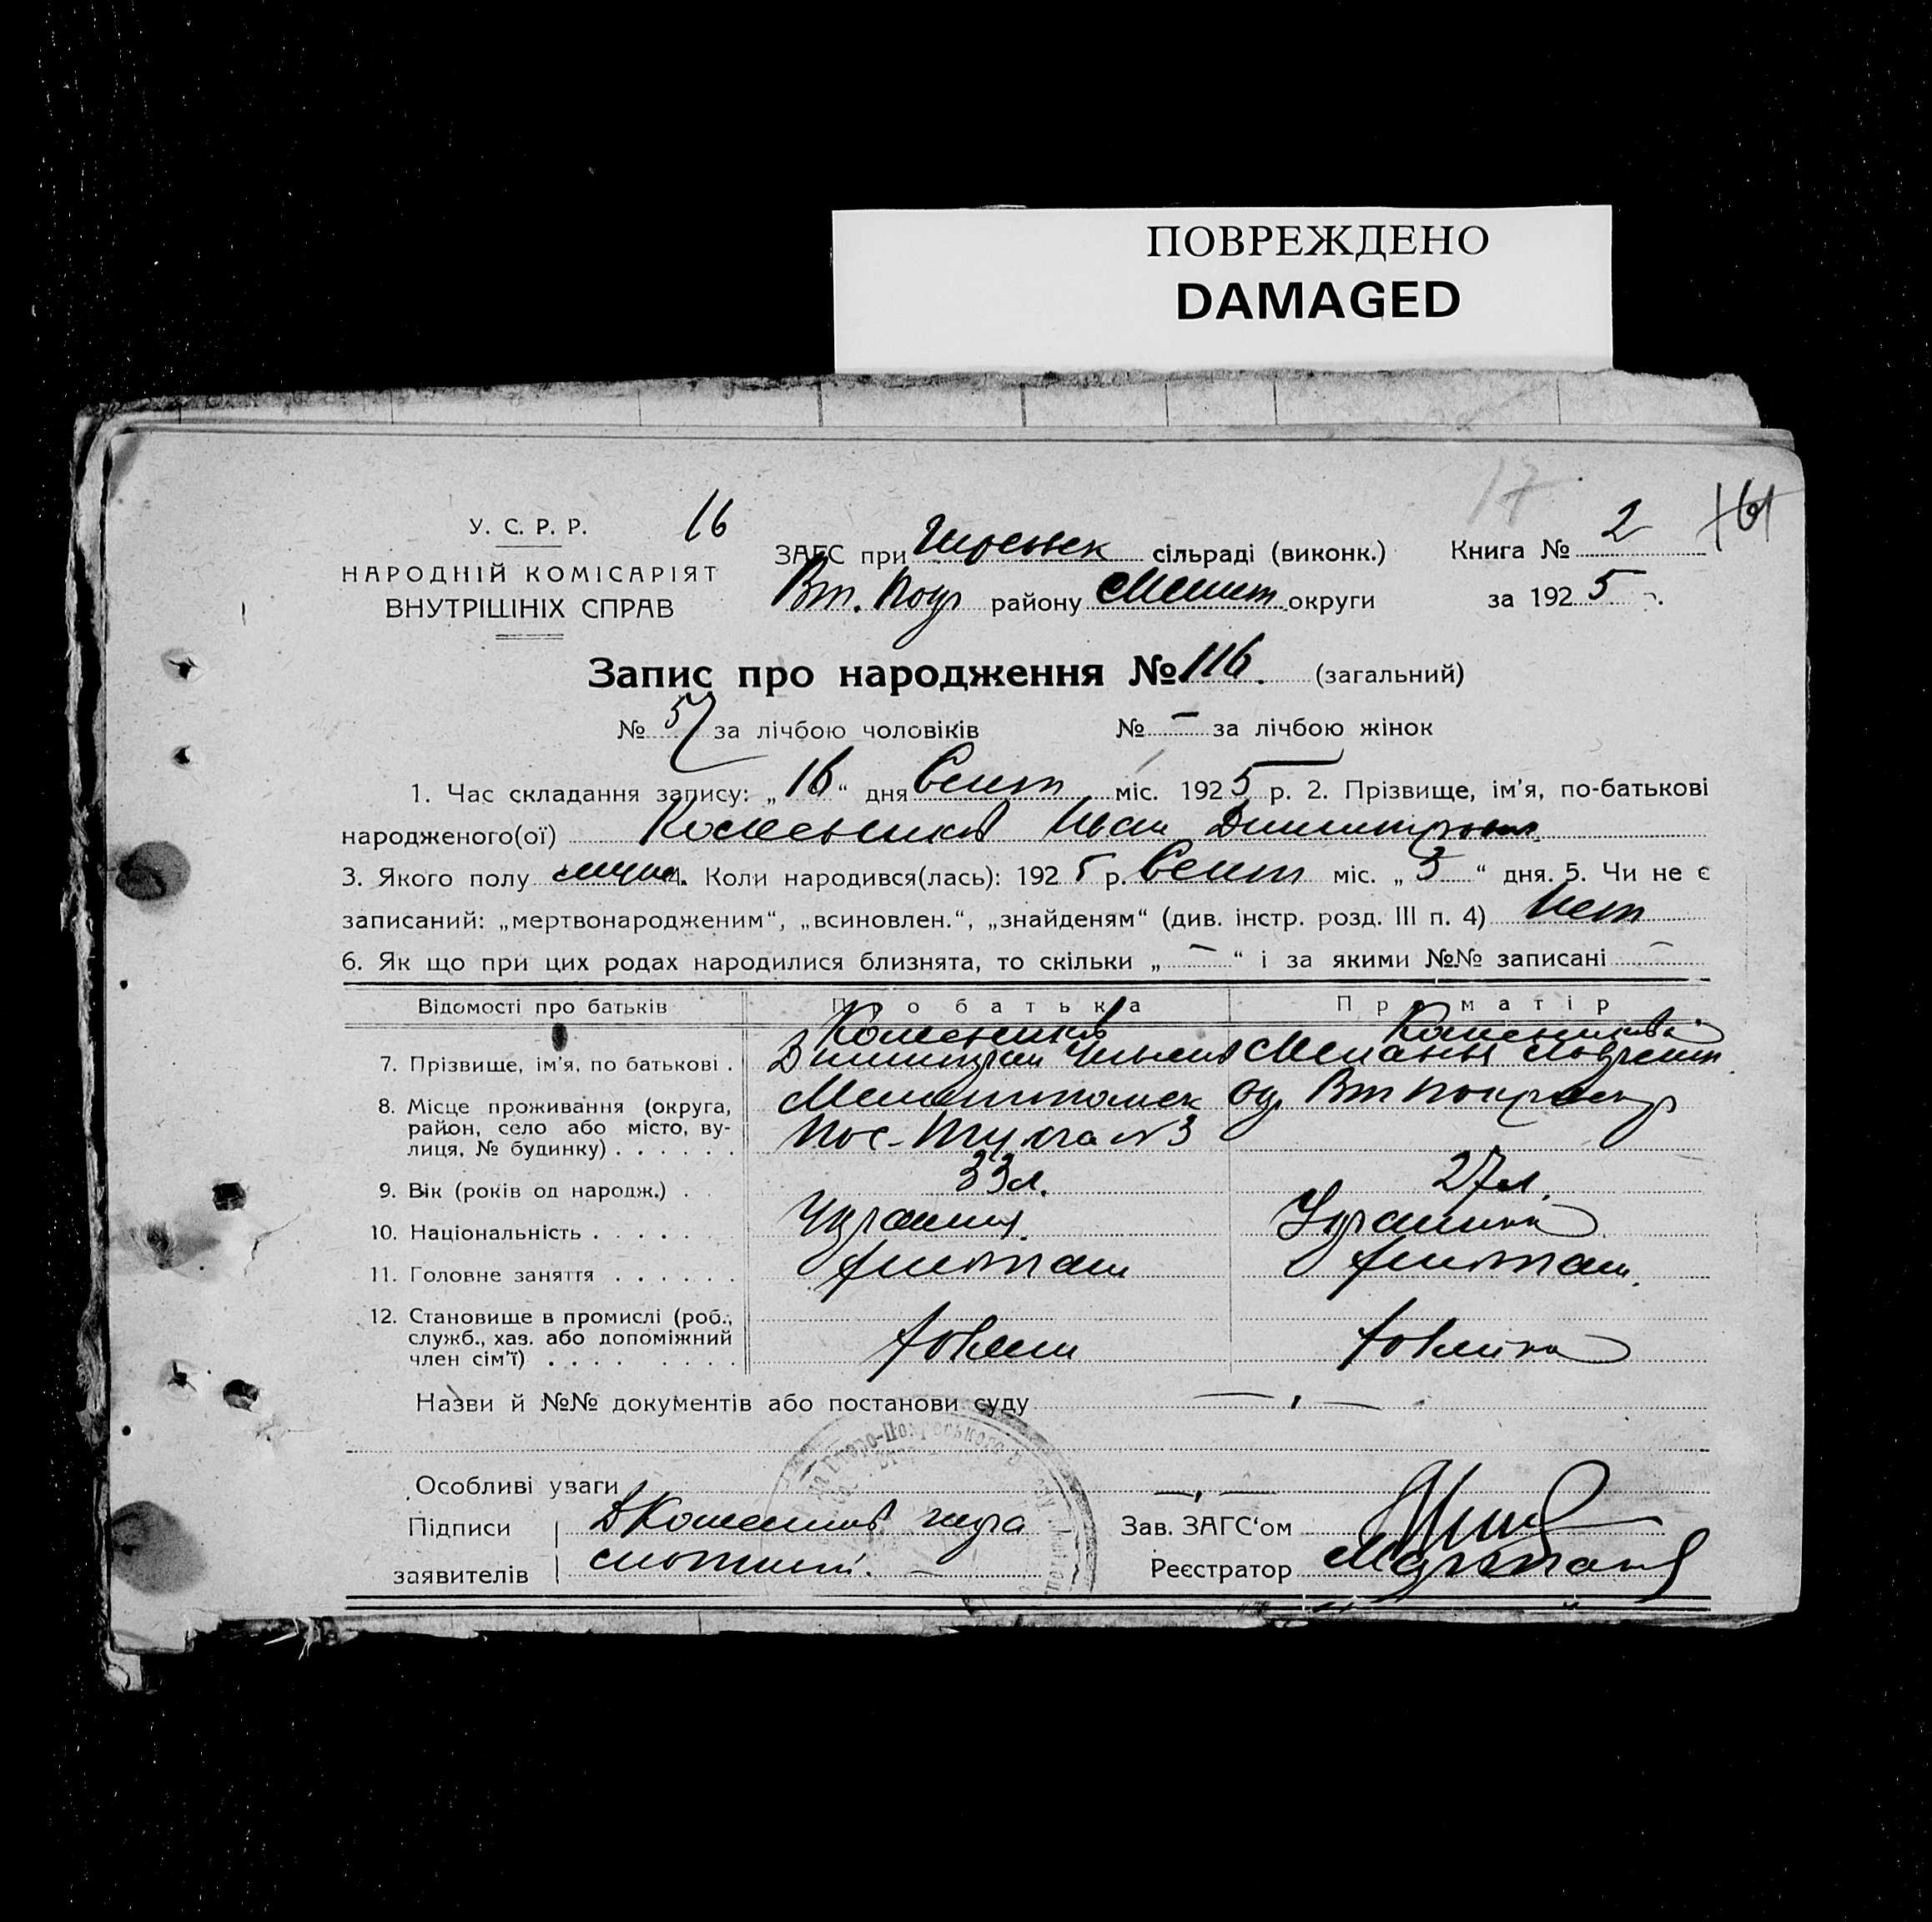 ПОВРЕЖДЕНО
DAMAGED
17
У. С. Р. Р.
16
ЗАГС при сільраді (виконк.)
Книга № 2
НАРОДНІЙ КОМІСАРІЯТ
ВНУТРІШНІХ СПРАВ
Вт. Покр району Мелит. округи
за 1925
Запис про народження № 116. (загальний)
№ 57 за лічбою чоловіків № – за лічбою жінок
1. Час складання запису: „16“ дня Сент. міс. 1925 р. 2. Прізвище, ім'я, по-батькові
народженого(ої) Колесников Иван Димитров
3. Якого полу мужс. 4. Коли народився(лась): 1925 р. Сент міс. „3“ дня. 5. Чи не є
записаний: „мертвонародженим“, „всиновлен.“, „знайденям“ (див. інстр. розд. III п. 4) Нет
6. Як що при цих родах народилися близнята, то скільки „–“ і за якими №№ записані –
Відомості про батьків Про батька Про матір
Колесников Колесникова
7. Прізвище, ім'я, по батькові . Димитрий Мелания
8. Місце проживання (округа, Мелитопольск ок. Вт Покр
район, село або місто, ву-
лиця, № будинку) . . . . . . пос. №3
9. Вік (років од народж.) . . 33 л. 27 л.
10. Національність . . . . . . Украинц. Украинка
11. Головне заняття . . . . . . хлебопаш хлебопаш.
12. Становище в промислі (роб.,
служб., хаз. або допоміжний
член сім'ї) . . . . . . . . хозяин хозяйка
Назви й №№ документів або постанови суду — „ —
Особливі уваги — „ —
Підписи Д Колесников
Зав. ЗАГС'ом
заявителів
Реєстратор